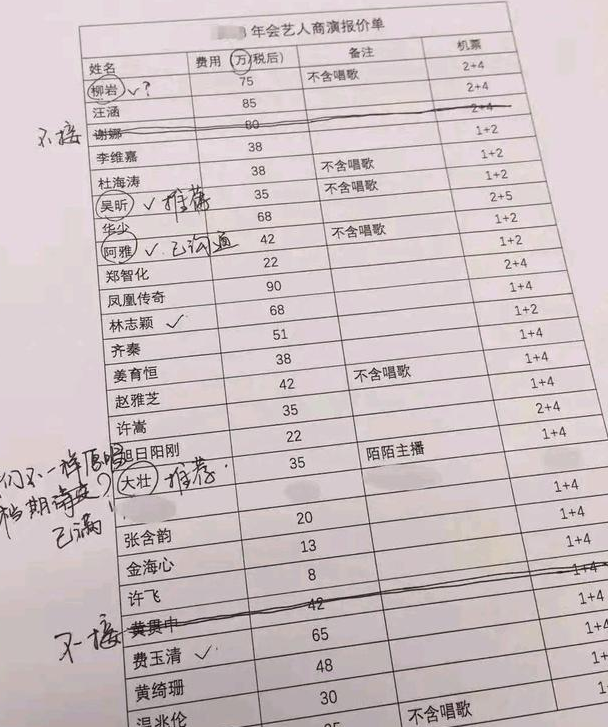 年会艺人商演报价单
姓名 费用(万/税后) 备注 机票
柳岩 ✓? 75 不含唱歌 2+4
汪涵 85 2+4
不接 谢娜 80 2+4
李维嘉 38 1+2
杜海涛 38 不含唱歌 1+2
吴昕 ✓推荐 35 不含唱歌 1+2
华少 68 2+5
阿雅 ✓.已沟通 42 不含唱歌 1+2
郑智化 22 1+2
凤凰传奇 90 2+4
林志颖 ✓ 68 1+4
齐秦 51 1+2
姜育恒 38 1+4
赵雅芝 42 不含唱歌 1+4
许嵩 35 1+4
旭日阳刚 22 2+4
们不一样原唱
大壮 推荐. 35 陌陌主播 1+4
档期
已满
1+4
张含韵 20 1+4
金海心 13 1+4
许飞 8 1+4
不接 黄贯中 42 1+4
费玉清 ✓ 65 1+4
黄绮珊 48 1+4
温兆伦 30
不含唱歌